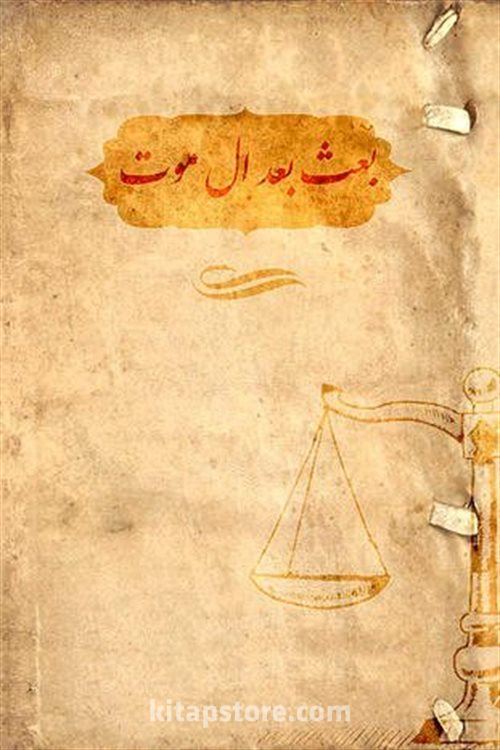 بعث بعد ال موت
kitapstore.com